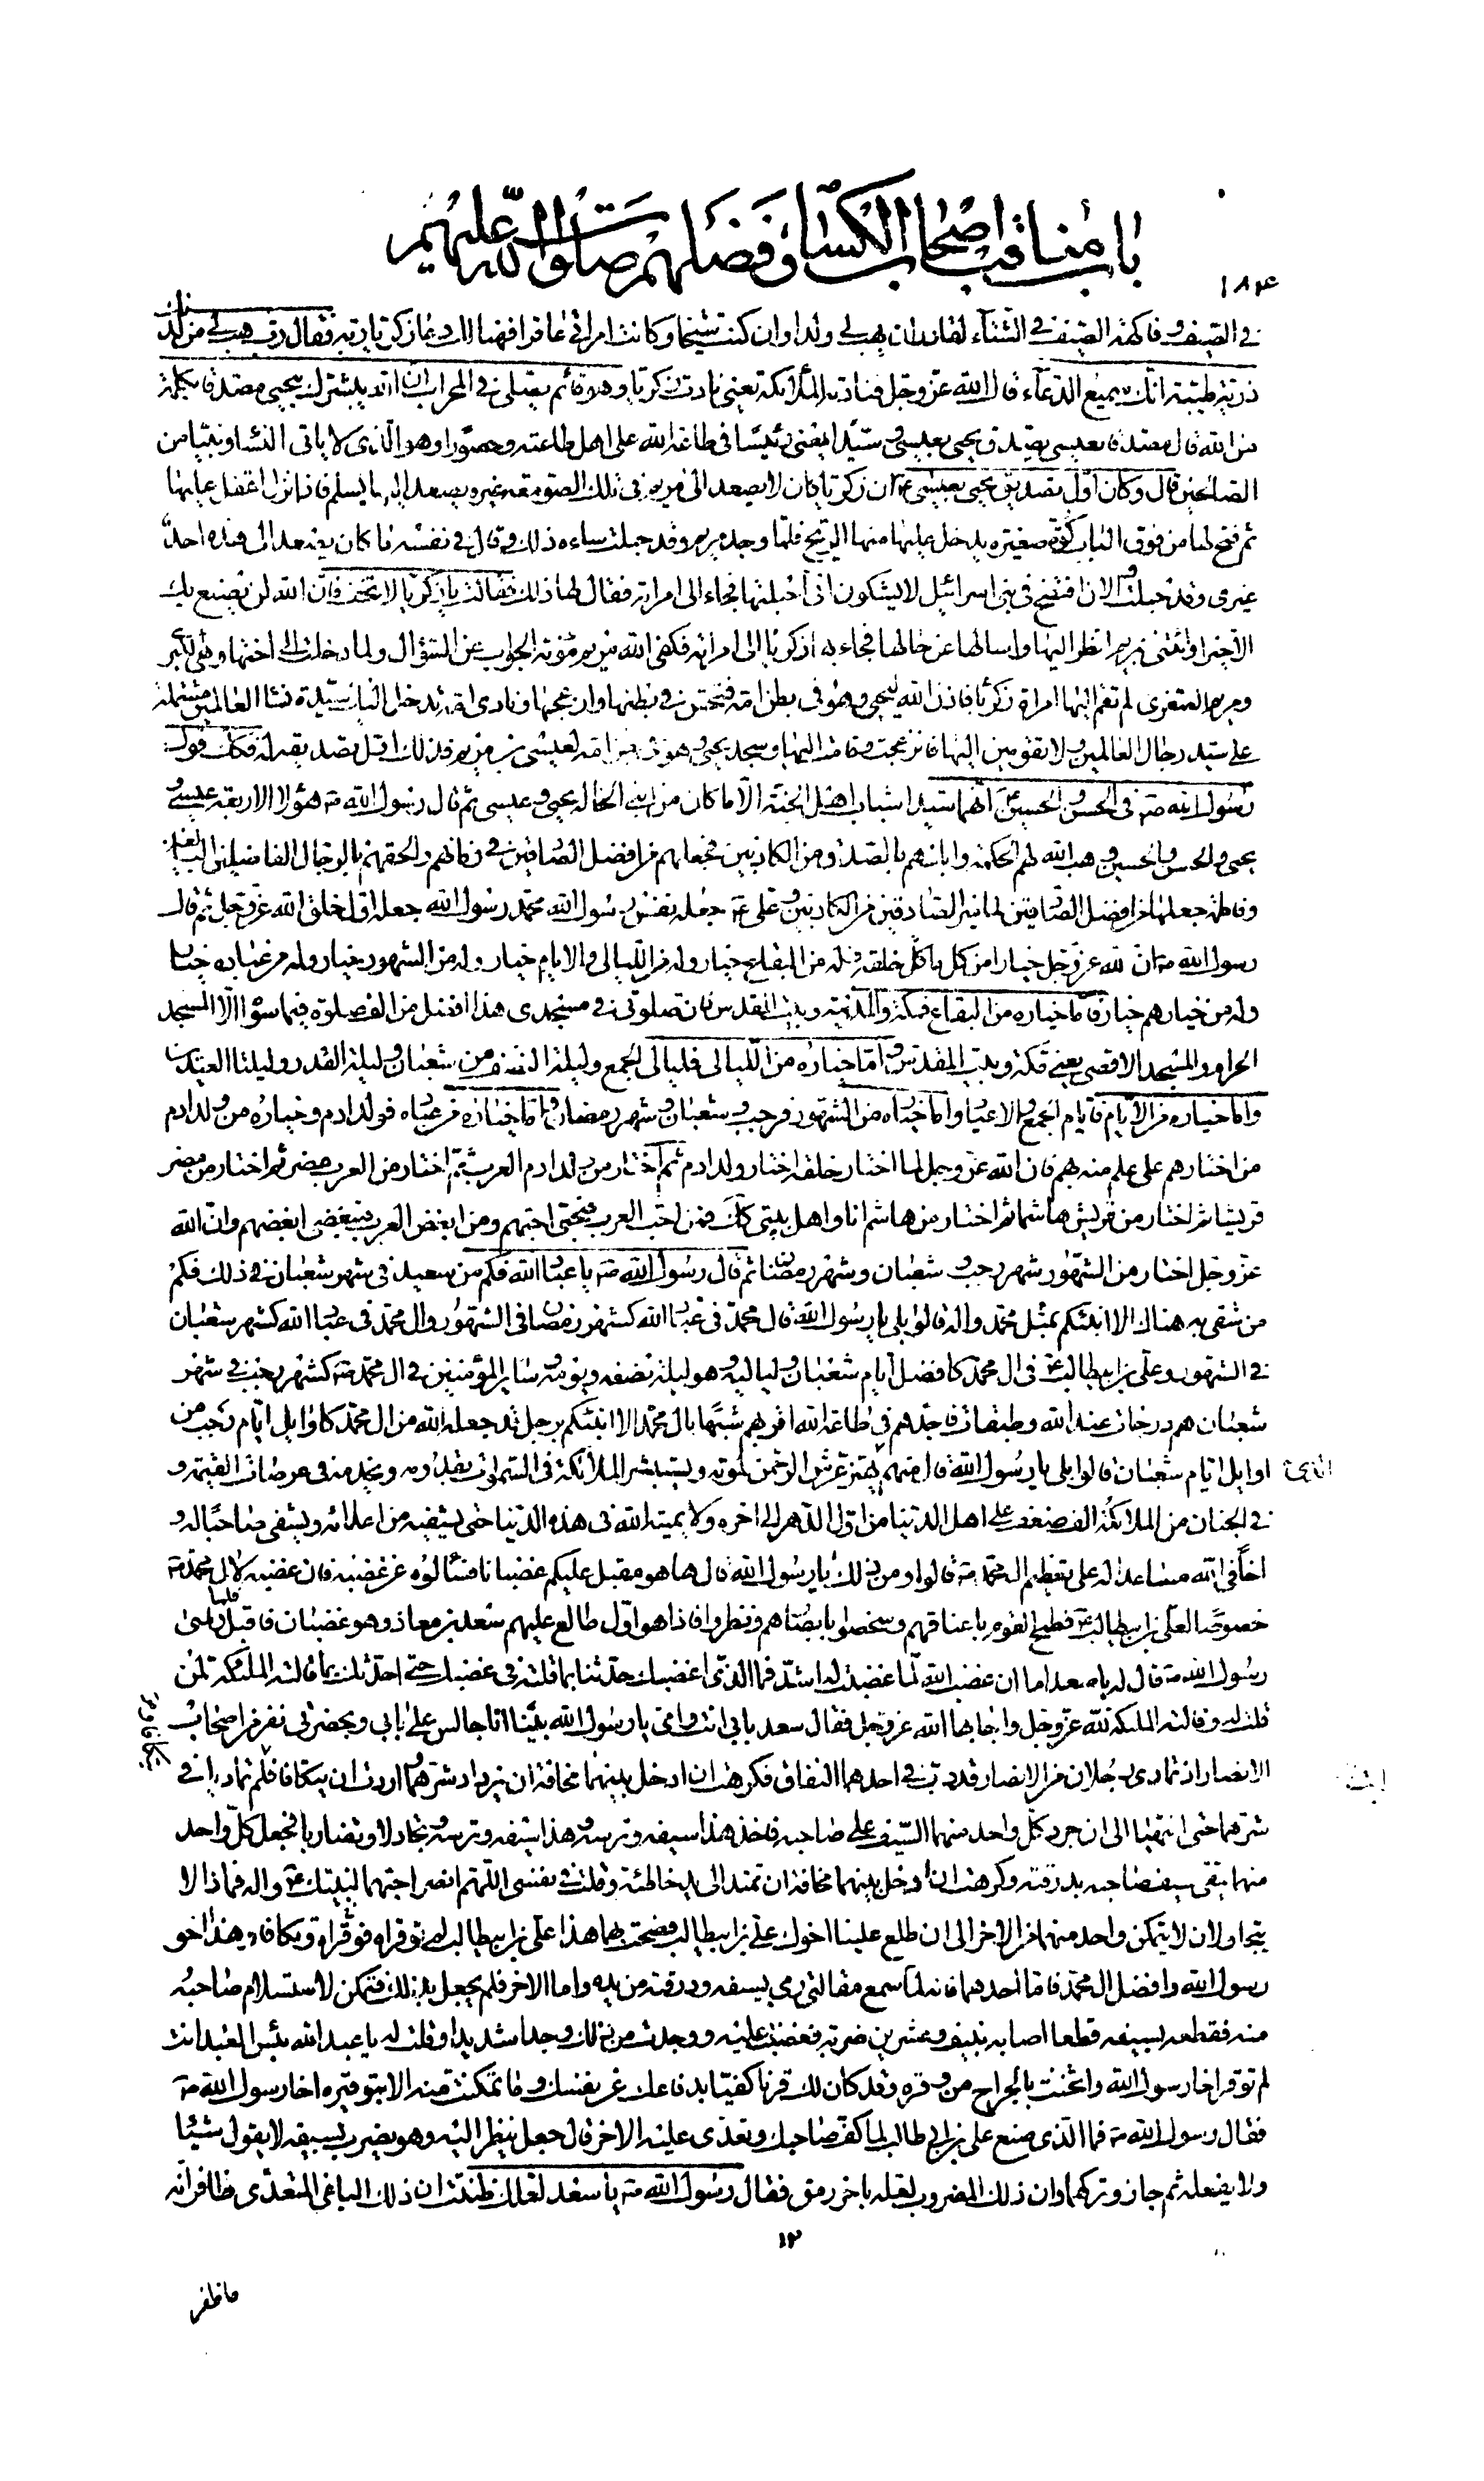 باب مناقب اصحاب الكساء وفضلهم صلوات الله عليهم
١٨٤
في الصيف وفاكهة الصيف في الشتاء لقادر ان يهب لي ولدا وان كنت شيخا وكانت امراتي عاقرا فهنالك دعا زكريا ربه فقال رب هب لي من لدنك
ذرية طيبة انك سميع الدعاء قال الله عز وجل فنادته الملائكة يعني نادت زكريا وهو قائم يصلي في المحراب ان الله يبشرك بيحيى مصدقا بكلمة
من الله قال مصدقا بعيسى يصدق يحيى بعيسى وسيدا يعني رئيسا في طاعة الله على اهل طاعته وحصورا وهو الذي لا ياتي النساء ونبيا من
الصالحين قال وكان اول تصديق يحيى بعيسى ع ان زكريا كان لا يصعد الى مريم في تلك الصومعة غيره يصعد اليها بسلم فاذا نزل اقفل عليها
ثم فتح لها من فوق الباب كوة صغيرة يدخل عليها منها الريح فلما وجد مريم وقد حبلت ساءه ذلك وقال في نفسه ما كان يصعد الى هذه احد
غيري وقد حبلت والان افتضح في بني اسرائيل لا يشكون اني احبلتها فجاء الى امراته فقال لها ذلك فقالت يا زكريا لا تخف فان الله لن يصنع بك
الا خيرا وائتني بمريم انظر اليها واسالها عن حالها فجاء بها زكريا الى امراته فكفى الله مريم مؤنة الجواب عن السؤال ولما دخلت الى اختها وهي الكبرى
ومريم الصغرى لم تقم اليها امراة زكريا فاذن الله ليحيى وهو في بطن امه فنخس في بطنها وازعجها ونادى امه تدخل اليك سيدة نساء العالمين مشتملة
على سيد رجال العالمين ولا تقومين اليها فانزعجت وقامت اليها وسجد يحيى وهو في بطن امه لعيسى بن مريم فذلك اول تصديقه له فكذلك قول
رسول الله ص في الحسن والحسين ع انهما سيدا شباب اهل الجنة الا ما كان من ابني الخالة يحيى وعيسى ثم قال رسول الله ص هؤلاء الاربعة عيسى و
يحيى والحسن والحسين وهب الله لهم الحكمة وابانهم بالصدق من الكاذبين فجعلهم من افضل الصادقين في زمانهم والحقهم بالرجال الفاضلين البالغين
وفاطمة جعلها من افضل الصادقين لما ميز الصادقين من الكاذبين وعلي ع جعله نفس رسول الله محمد رسول الله جعله افضل خلق الله عز وجل ثم قال
رسول الله ص ان لله عز وجل خيارا من كل ما خلقه فله من البقاع خيار وله من الليالي والايام خيار وله من الشهور خيار وله من عباده خيار
وله من خيارهم خيار فاما خياره من البقاع فمكة والمدينة وبيت المقدس فان صلوة في مسجدي هذا افضل من الف صلوة فيما سواه الا المسجد
الحرام والمسجد الاقصى يعني مكة وبيت المقدس واما خياره من الليالي فليالي الجمع وليلة النصف من شعبان وليلة القدر وليلتا العيدين
واما خياره من الايام فايام الجمع والاعياد واما خياره من الشهور فرجب وشعبان وشهر رمضان واما خياره من عباده فولد ادم وخياره من ولد ادم
من اختارهم على علم منه بهم فان الله عز وجل لما اختار خلقه اختار ولد ادم ثم اختار من ولد ادم العرب ثم اختار من العرب مضر ثم اختار من مضر
قريشا ثم اختار من قريش هاشما ثم اختار من هاشم انا واهل بيتي كذلك فمن احب العرب فبحبي احبهم ومن ابغض العرب فببغضي ابغضهم وان الله
عز وجل اختار من الشهور شهر رجب وشعبان وشهر رمضان ثم قال رسول الله ص يا عباد الله فكم من سعيد في شهر شعبان في ذلك فكم
من شقي به هناك الا انبئكم بمثل محمد واله قالوا بلى يا رسول الله قال محمد في عباد الله كشهر رمضان في الشهور وال محمد في عباد الله كشهر شعبان
في الشهور وعلي بن ابيطالب ع في ال محمد كافضل ايام شعبان ولياليه وهو ليلة نصفه ويومه وساير المؤمنين في ال محمد ص كشهر رجب في شهر
شعبان هم درجات عند الله وطبقات فاجدهم في طاعة الله اقربهم شبها بال محمد الا انبئكم برجل قد جعله الله من ال محمد كاوايل ايام رجب من
اوايل ايام شعبان قالوا بلى يا رسول الله قال منهم الذي يهتز عرش الرحمن لموته ويستبشر الملائكة في السموات بقدومه ويخدمه في عرصات القيمة و
في الجنان من الملائكة الف ضعف على اهل الدنيا من اول الدهر الى اخره ولا يميته الله في هذه الدنيا حتى يشفيه من اعدائه ويشفي صاحبا له و
اخا في الله مساعدا له على تعظيم ال محمد ص قالوا ومن ذلك يا رسول الله قال ها هو مقبل عليكم غضبانا فسئالوه عن غضبه فان غضبه لال محمد ص
خصوصا لعلي بن ابيطالب ع فطمح القوم باعناقهم وشخصوا بابصارهم ونظروا فاذا هو اول طالع عليهم سعد بن معاذ وهو غضبان فاقبل فلما راى
رسول الله ص قال له يا سعد اما ان غضب الله لما غضبت له اشد فما الذي اغضبك حدثنا بما قلته في غضبك حتى احدثك بما قالته الملئكة لمن
قلت له وقالته الملئكة لله عز وجل واجابها الله عز وجل فقال سعد بابي انت وامي يا رسول الله بينا انا جالس على بابي وبحضرتي نفر من اصحاب
الانصار اذ تمادى رجلان من الانصار قد دب في احدهما النفاق فكرهت ان ادخل بينهما مخافة ان يزداد شرهما واردت ان يتكافا فلم يتكافا وتماديا في
شرهما حتى انتهيا الى ان جرد كل واحد منهما السيف على صاحبه فاخذ هذا سيفه وترسه وهذا سيفه وترسه وتجادلا وتضاربا فجعل كل واحد
منهما يتقي سيف صاحبه بدرقته وكرهت ان ادخل بينهما مخافة ان تمتد الى يد خاطئة وقلت في نفسي اللهم انصر احبهما لنبيك ع واله فما زالا
يتجاولان لا يتمكن واحد منهما من الاخر الى ان طلع علينا اخوك علي بن ابيطالب فصحت بهما هذا علي بن ابيطالب لم توقراه فوقراه وتكافا فهذا اخو
رسول الله وافضل ال محمد فاما احدهما فانه لما سمع مقالتي رمى بسيفه ودرقته من يده واما الاخر فلم يحفل بذلك فتمكن لاستسلام صاحبه
منه فقطعه بسيفه قطعا اصابه بنيف وعشرين ضربة فغضبت عليه ووجدت من ذلك وجدا شديدا وقلت له يا عبد الله بئس العبد انت
لم توقر اخا رسول الله واثخنت بالجراح من وقره وقد كان لك قرنا كفيا بدفاعك عن نفسك وما تمكنت منه الا بتوقيره اخا رسول الله ص
فقال رسول الله ص فما الذي صنع علي بن ابي طالب لما كف صاحبك وتعدى عليه الاخر قال جعل ينظر اليه وهو يضرب بسيفه لا يقول شيئا
ولا يفعله ثم جاز وتركهما وان ذلك المضروب لعله باخر رمق فقال رسول الله ص يا سعد لعلك ظننت ان ذلك الباغي المتعدي ظافر انه
١٢
ما ظفر